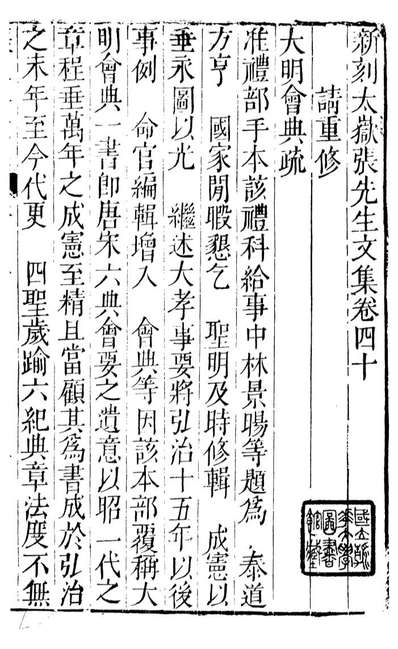 新刻太嶽張先生文集卷四十
請重修
大明會典疏
准禮部手本該禮科給事中林景暘等題爲 泰道
方亨 國家閒暇懇乞 聖明及時修輯 成憲以
垂永圖以光 繼述大孝事要將弘治十五年以後
事例 命官編輯增入 會典等因該本部覆稱大
明會典一書即唐宋六典會要之遺意以昭一代之
章程垂萬年之成憲至精且當顧其爲書成於弘治
之末年至今代更 四聖歲踰六紀典章法度不無